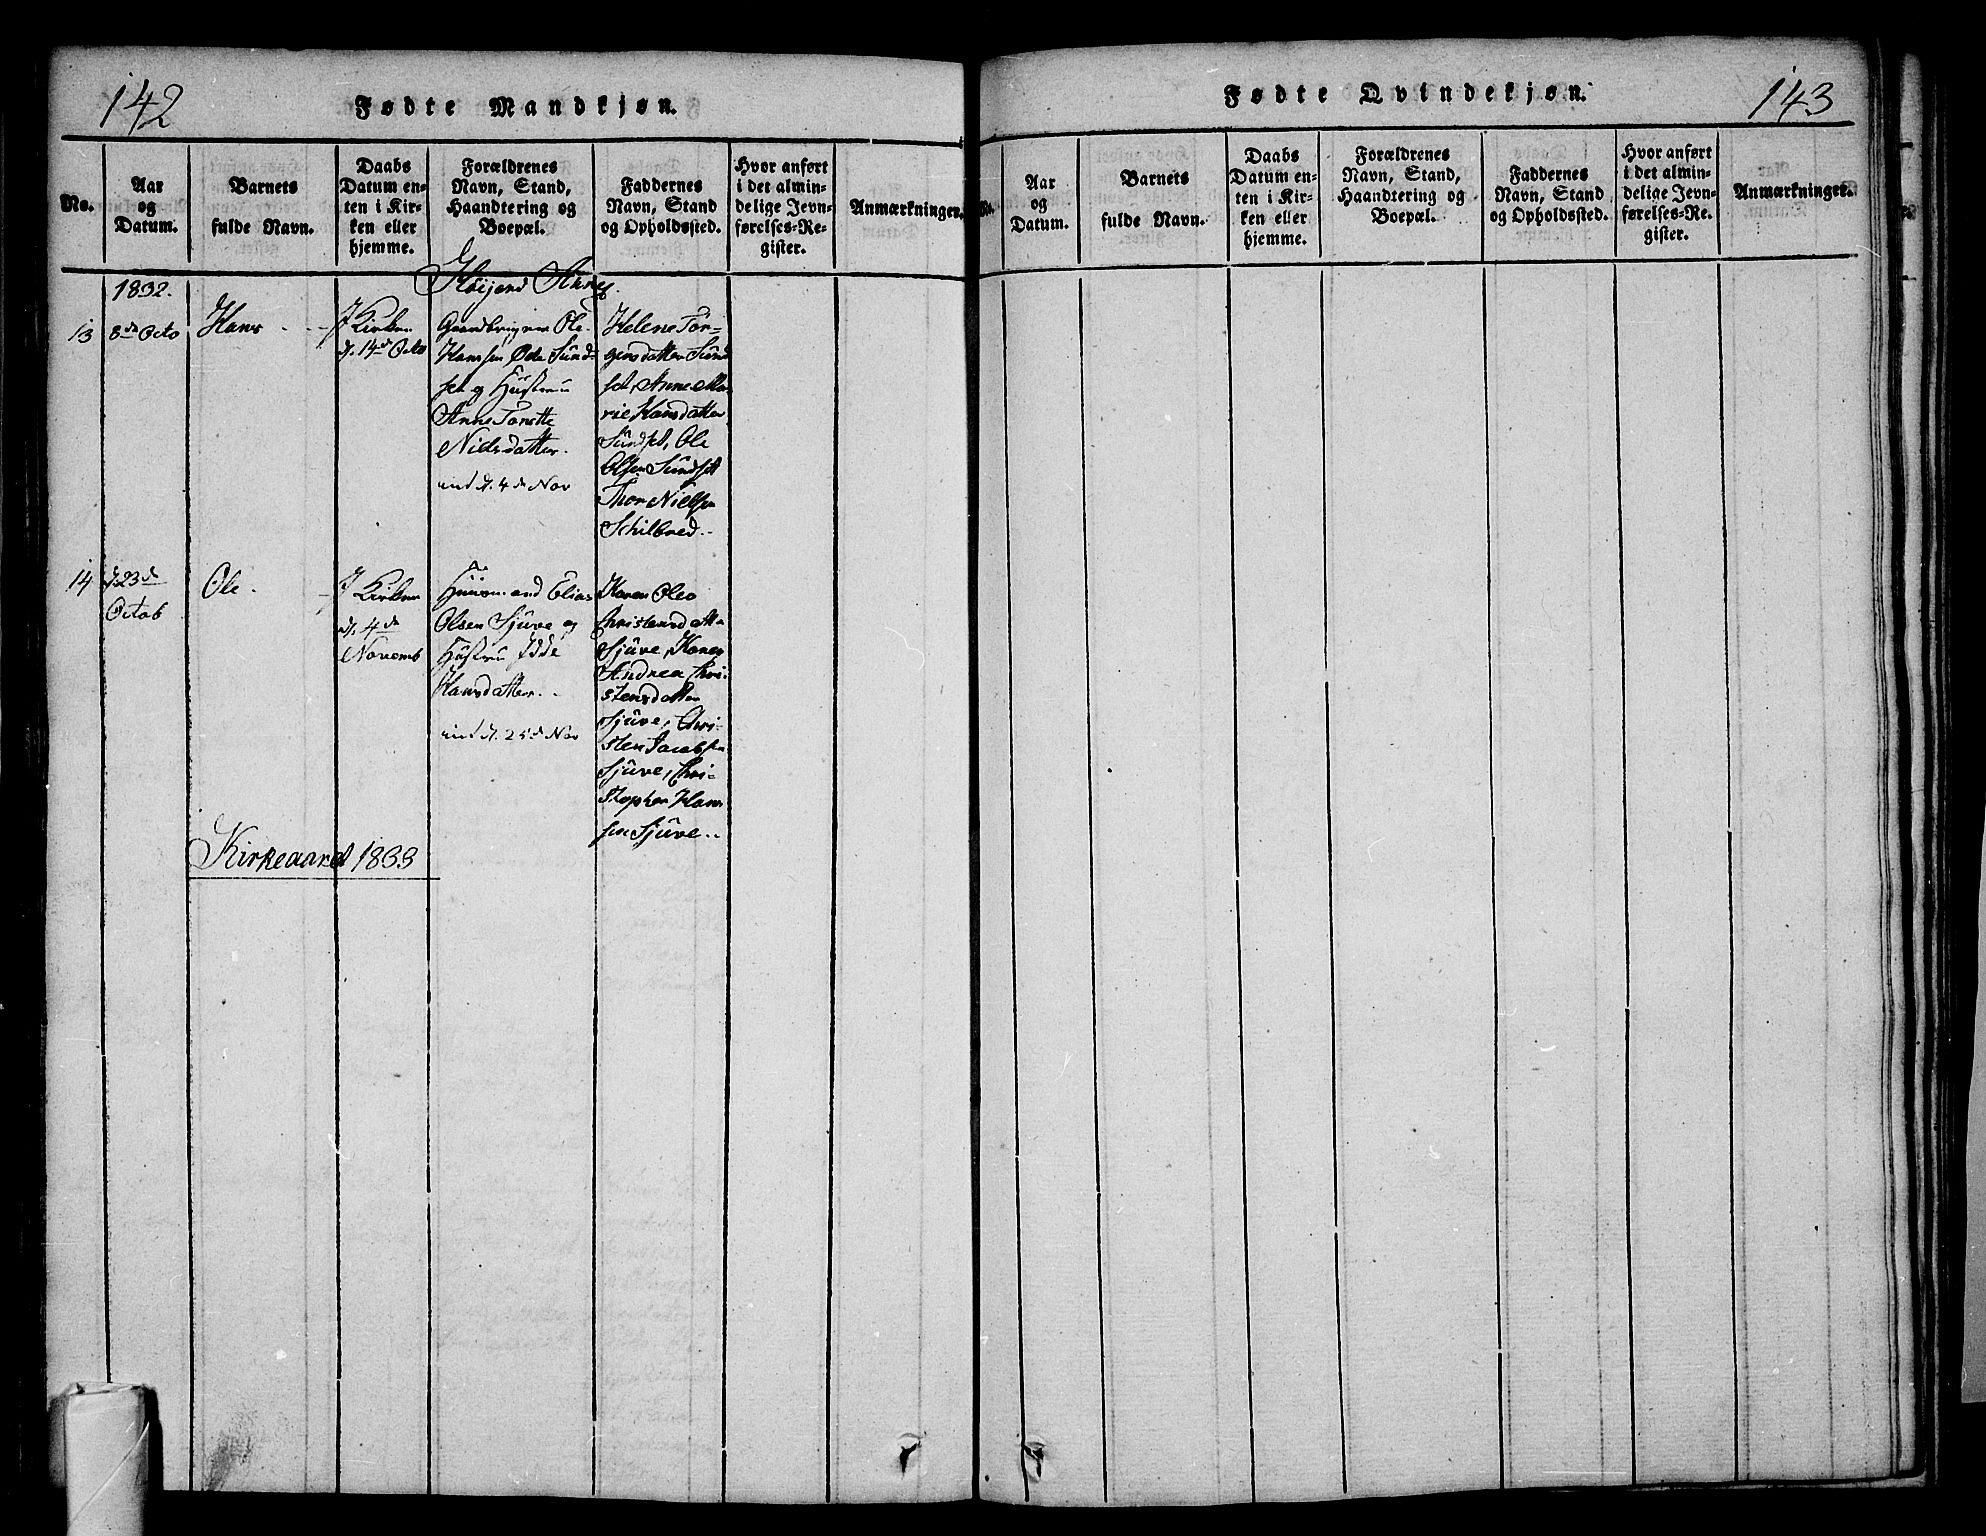 142
Fødte Mandkjøn.
No.
Aar
og
Datum.
Barnets
fulde Navn.
Daabs
Datum en-
ten i Kir-
ken eller
hjemme.
Forældrenes
Navn, Stand,
Haandtering og
Boepæl.
Faddernes
Navn, Stand
og Opholdssted.
Hvor anført
i det almin-
delige Jevn-
førelses-Re-
gister.
Anmærkninger.
1832.
13
8de Octo
Hans
I Kirken
d. 14de Octo
Gaardbruger Ole
Hanssen Østre Sund-
set og Hustrue
Anne Tonette
Nielsdatter.
ind d. 4de Nov
Helene Tor-
gersdatter Sund
set, Anne Ma
rie Hansdatter
Sundset, Ole
Olsen Sundset
Thor Nielsen
Schilbred.
14
d. 23de
Octob
Ole.
I Kirken
d. 4de
Novemb
Huusmand Elias
Olsen Sjuve og
Hustrue Idde
Hansdatter.
ind d. 25de Nov
Karen Olea
Christensdatter
Sjuve, Karen
Andrea Chri-
stensdatter
Sjuve, Chri-
sten Jacobsen
Sjuve, Chri-
stopher Hans
sen Sjuve.
Kirkeaaret 1833
143
Fødte Qvindekjøn.
No.
Aar
og
Datum.
Barnets
fulde Navn.
Daabs
Datum en-
ten i Kir-
ken eller
hjemme.
Forældrenes
Navn, Stand,
Haandtering og
Boepæl.
Faddernes
Navn, Stand
og Opholdssted.
Hvor anført
i det almin-
delige Jevn-
førelses-Re-
gister.
Anmærkninger.